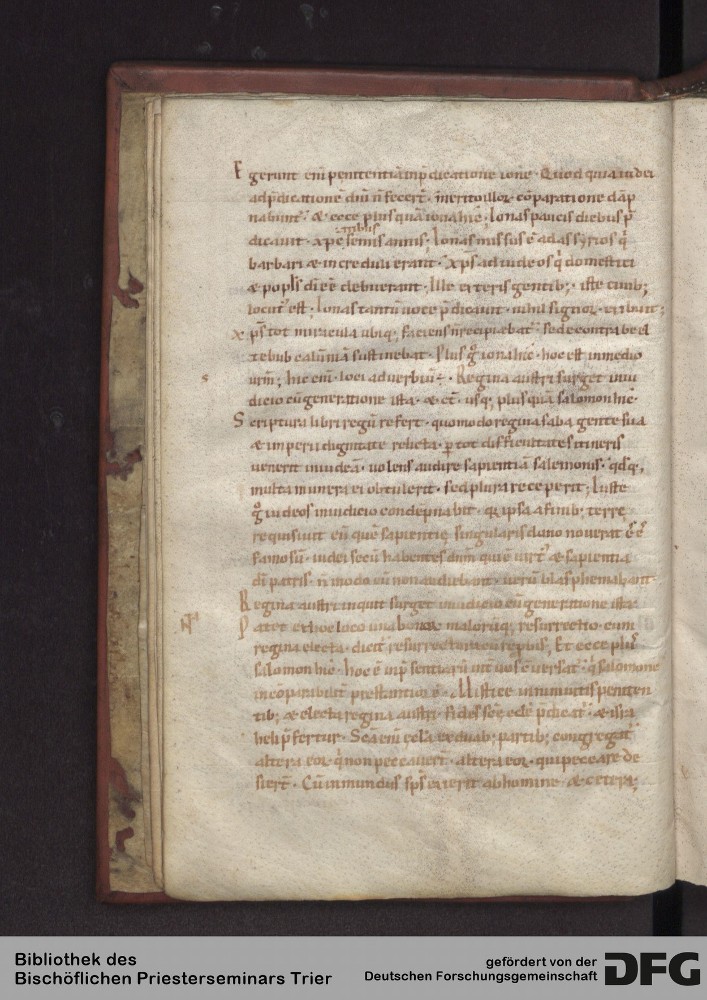 Egerunt eni᷒ penitentiā in p̄dicatione ione᷒. Quod quia iudei
ad p̄dicatione᷒ dn̄i n̄ fecer̄t. merito illoꝝ cōparatione dāp
nabunt᷒. & ecce plus quā iona hic. Ionas paucis diebus p̄
dicauit. xp̄c trib; semis annis. Ionas missus ē ad assyrios q̄
barbari & increduli erant. Xp̄s ad iudeos q̄ domestici
& popl̄s dī ēē debuerant. Ille exteris gentib;. iste ciuib;
locut᷒ est. Ionas tantū uoce p̄dicauit. nihil signoꝝ exibuit;
xp̄s tot miracula ubiq; faciens n̄ recipiebat᷒. sed e contra beel
zebub calūniā sustinebat. Plus g̊ iona hic. hoc est in medio
urm̄; hic eni᷒. loci aduerbiū ÷. Regina austri surget in iu
dicio cū generatione ista. & ct̄. usq; plus quā salomon hic.
Scriptura libri regū refert. quomodo regina saba gente sua
& imperii dignitate relicta. p̱ tot difficultates itineris
uenerit in iudeā. uolens audire sapientiā salemonis. qđq;
multa munera ei obtulerit. sed plura receperit; Iuste
g̊ iudeos in iudicio condēpnabit. q̄ ipsa a finib; terre᷒
requisiuit eū que᷒ sapientie᷒ singularis dono nouerat ēē
famosū. iudei secū habentes dn̄m qui ē uirt᷒ & sapientia
dī patris. n̄ modo eū non audiebant. uerū blasphemabant.
Regina austri inquit surget in iudicio cū generatione ista.
Patet ex hoc loco una bonoꝝ maloruq; resurrectio. cum
regina electa. dicit᷒ resurrectorie cu reprius. Et ecce plus᷒
salomon hic. hoc ē inp̄sentiarū int̄ uos conuersat᷒. q̄ salomone
incōparabilit̄ prestantior ē. Mistice in niniuitis peniten
tib; & electa regina austri. fides se᷒ ece᷒ p̄dicat᷒. & isra
heli p̄fertur. Sc̄a eni᷒ ecl̄a ex duab; partib; congregat᷒
altera eoꝝ q̄ non peccauer̄t. altera eoꝝ. qui peccare de
sier̄t. Cū inmundus sp̄s exierit ab homine & cetera;
Bibliothek des
Bischöflichen Priesterseminars Trier
gefördert von der
Deutschen Forschungsgemeinschaft
DFG